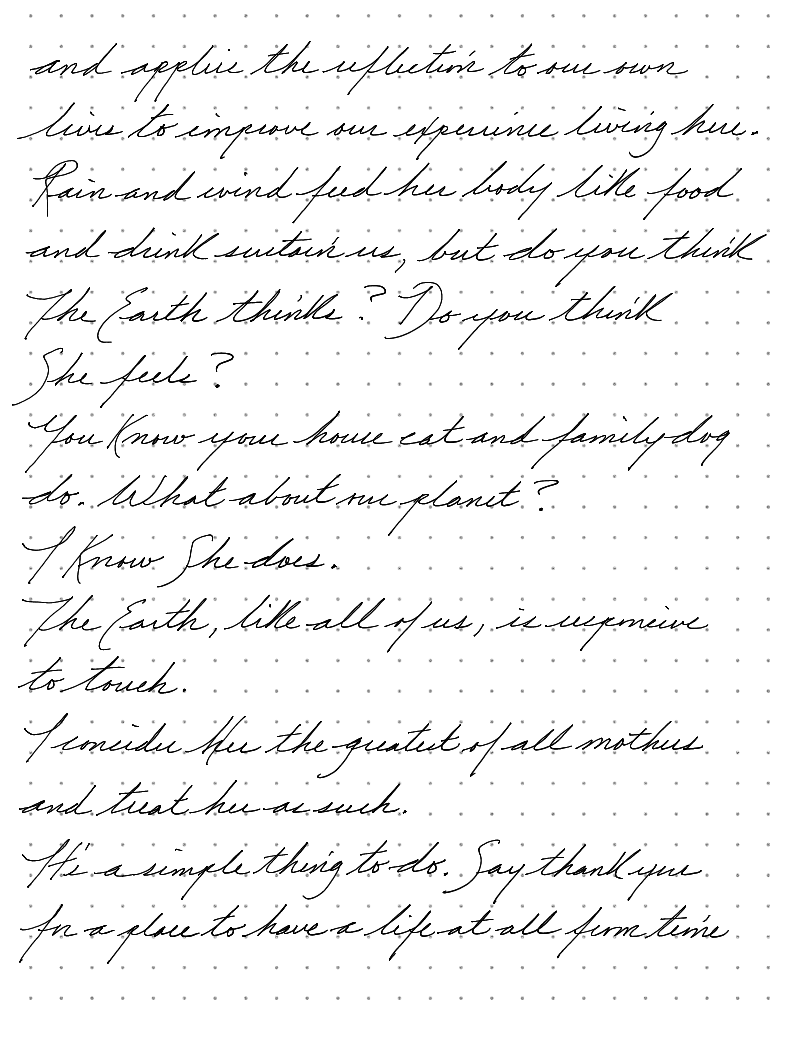 and applie the reflection to our own
lives to improve our experience living here.
Rain and wind feed her body like food
and drink sustain us, but do you think
The Earth thinks? Do you think
She feels?
You Know your house cat and family dog
do. What about our planet?
I Know She does.
The Earth, like all of us, is responsive
to touch.
I consider Her the greatest of all mothers
and treat her as such.
It's a simple thing to do. Say thank you
for a place to have a life at all from time